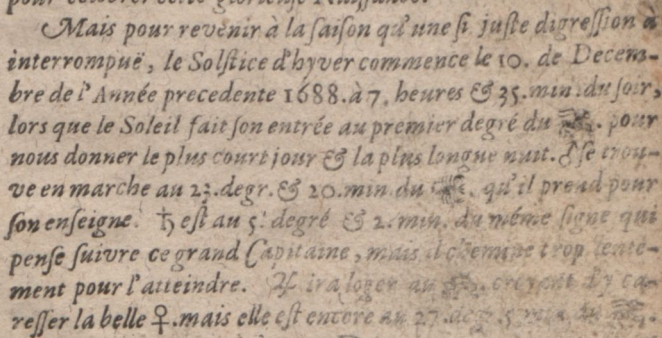 Mais pour revenir à la saison qu'une si juste digression a
interrompuë, le Solstice d'hyver commence le 10. de Decem-
bre de l'Année precedente 1688. à 7. heures & 35. min. du soir,
lors que le Soleil fait son entrée au premier degré du ♑. pour
nous donner le plus court jour & la plus longue nuit. se trou-
ve en marche au degr. & 20. min. du ♑. qu'il prend pour
son enseigne. ♄ est au 5. degré & 2. min. du méme signe qui
pense suivre ce grand Capitaine, mais il chemine trop lente-
ment pour l'atteindre. ♃ ira loger au croyant d'y ca-
resser la belle ♀. mais elle est encore au 27. degr. 5 min. du